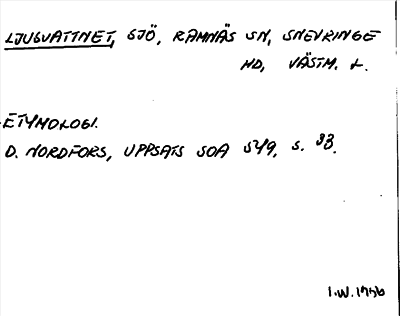 LJUGVATTNET, SJÖ, RAMNÄS SN, SNEVRINGE
HD, VÄSTM. L.
ETYMOLOGI.
D. NORDFORS, UPPSATS SOA 549, s. 33.
I.W. 1956